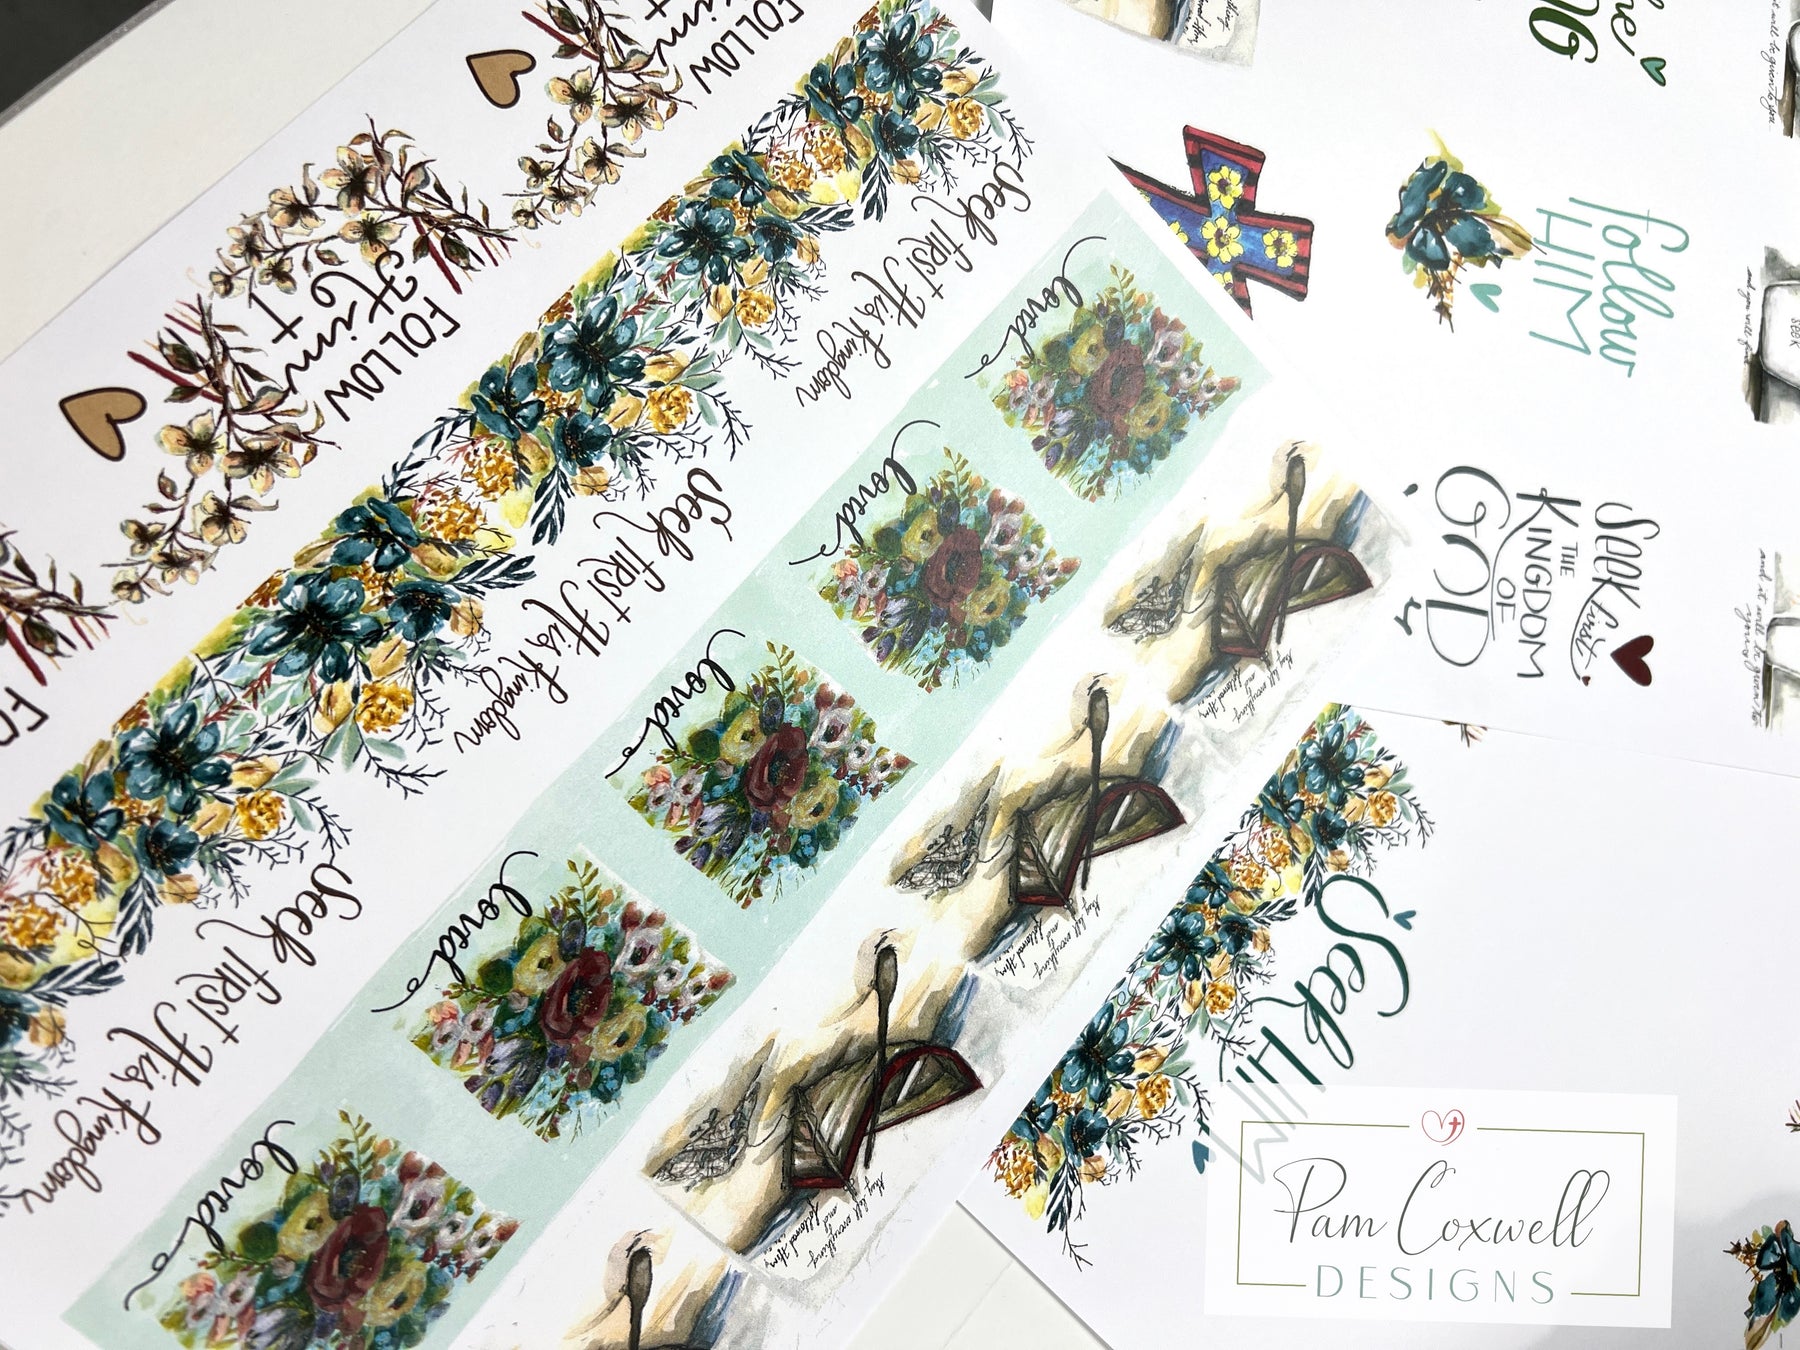 FOLLOW
Him
FOLLOW
Him
FO
Seek first His Kingdom
Seek first His Kingdom
Seek first His Kingdom
loved
loved
loved
loved
loved
they left everything
and
followed Him
they left everything
and
followed Him
they left everything
and
followed Him
he
follow
HIM
Seek first
THE
KINGDOM
OF
GOD
SEEK
and you will find
and it will be given to
you
Seek
HIM
Pam Coxwell
DESIGNS